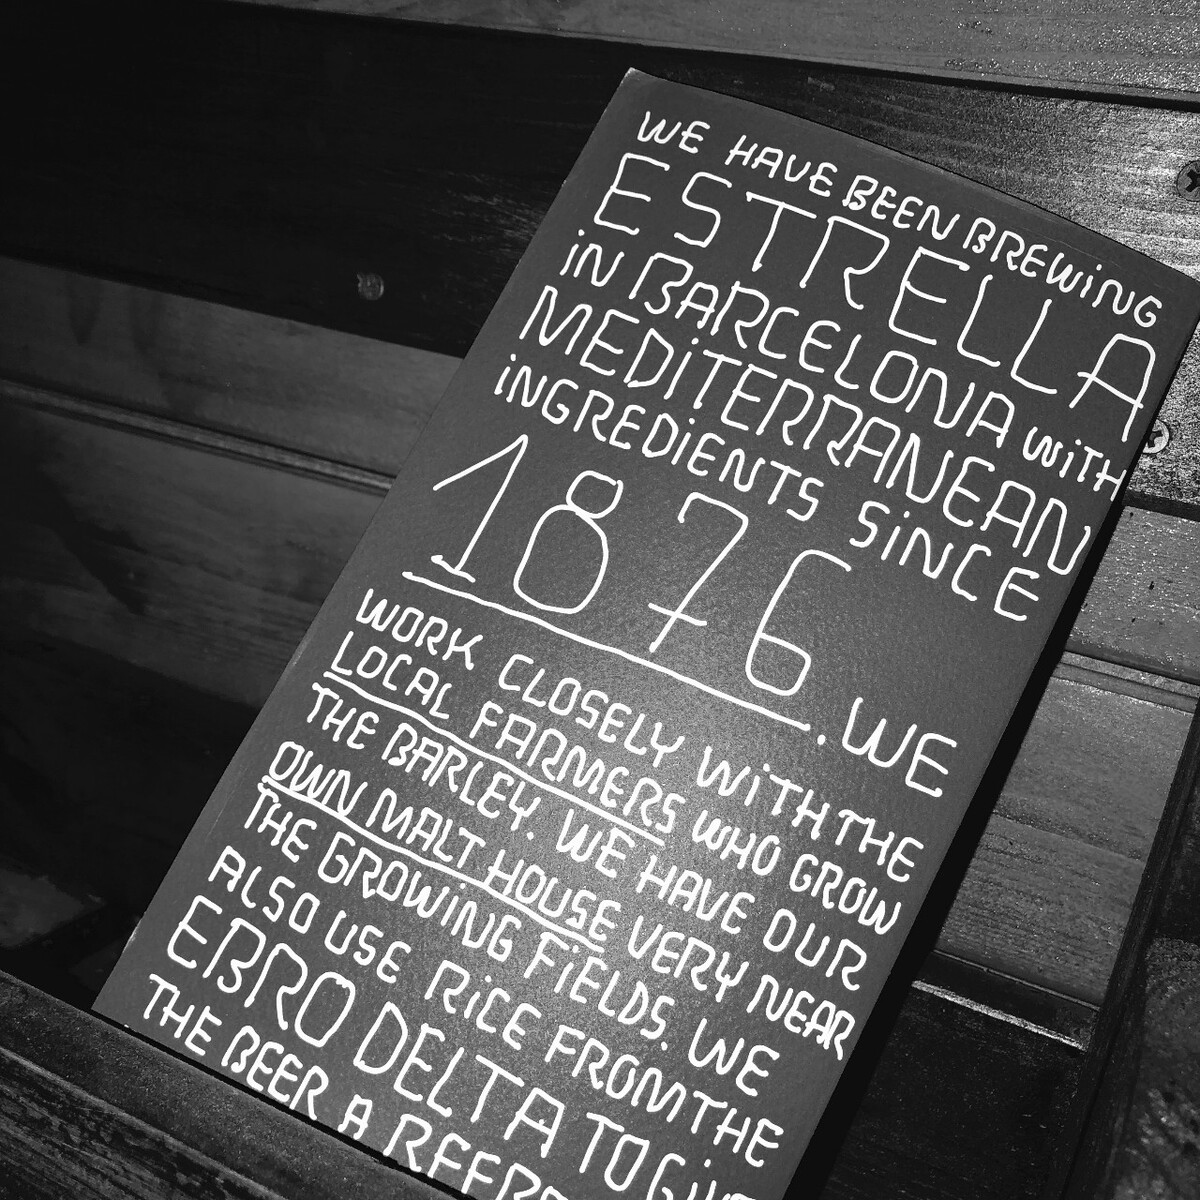 WE HAVE BEEN BREWiNG
ESTRELLA
iN BARCELONA WiTH
MEDiTERRANEAN
iNGREDiENTS SiNCE
1876. WE
WORK CLOSELY WiTH THE
LOCAL FARMERS WHO GROW
THE BARLEY. WE HAVE OUR
OWN MALT HOUSE VERY NEAR
THE GROWiNG FiELDS. WE
ALSO USE RiCE FROM THE
EBRO DELTA TO GiVE
THE BEER A